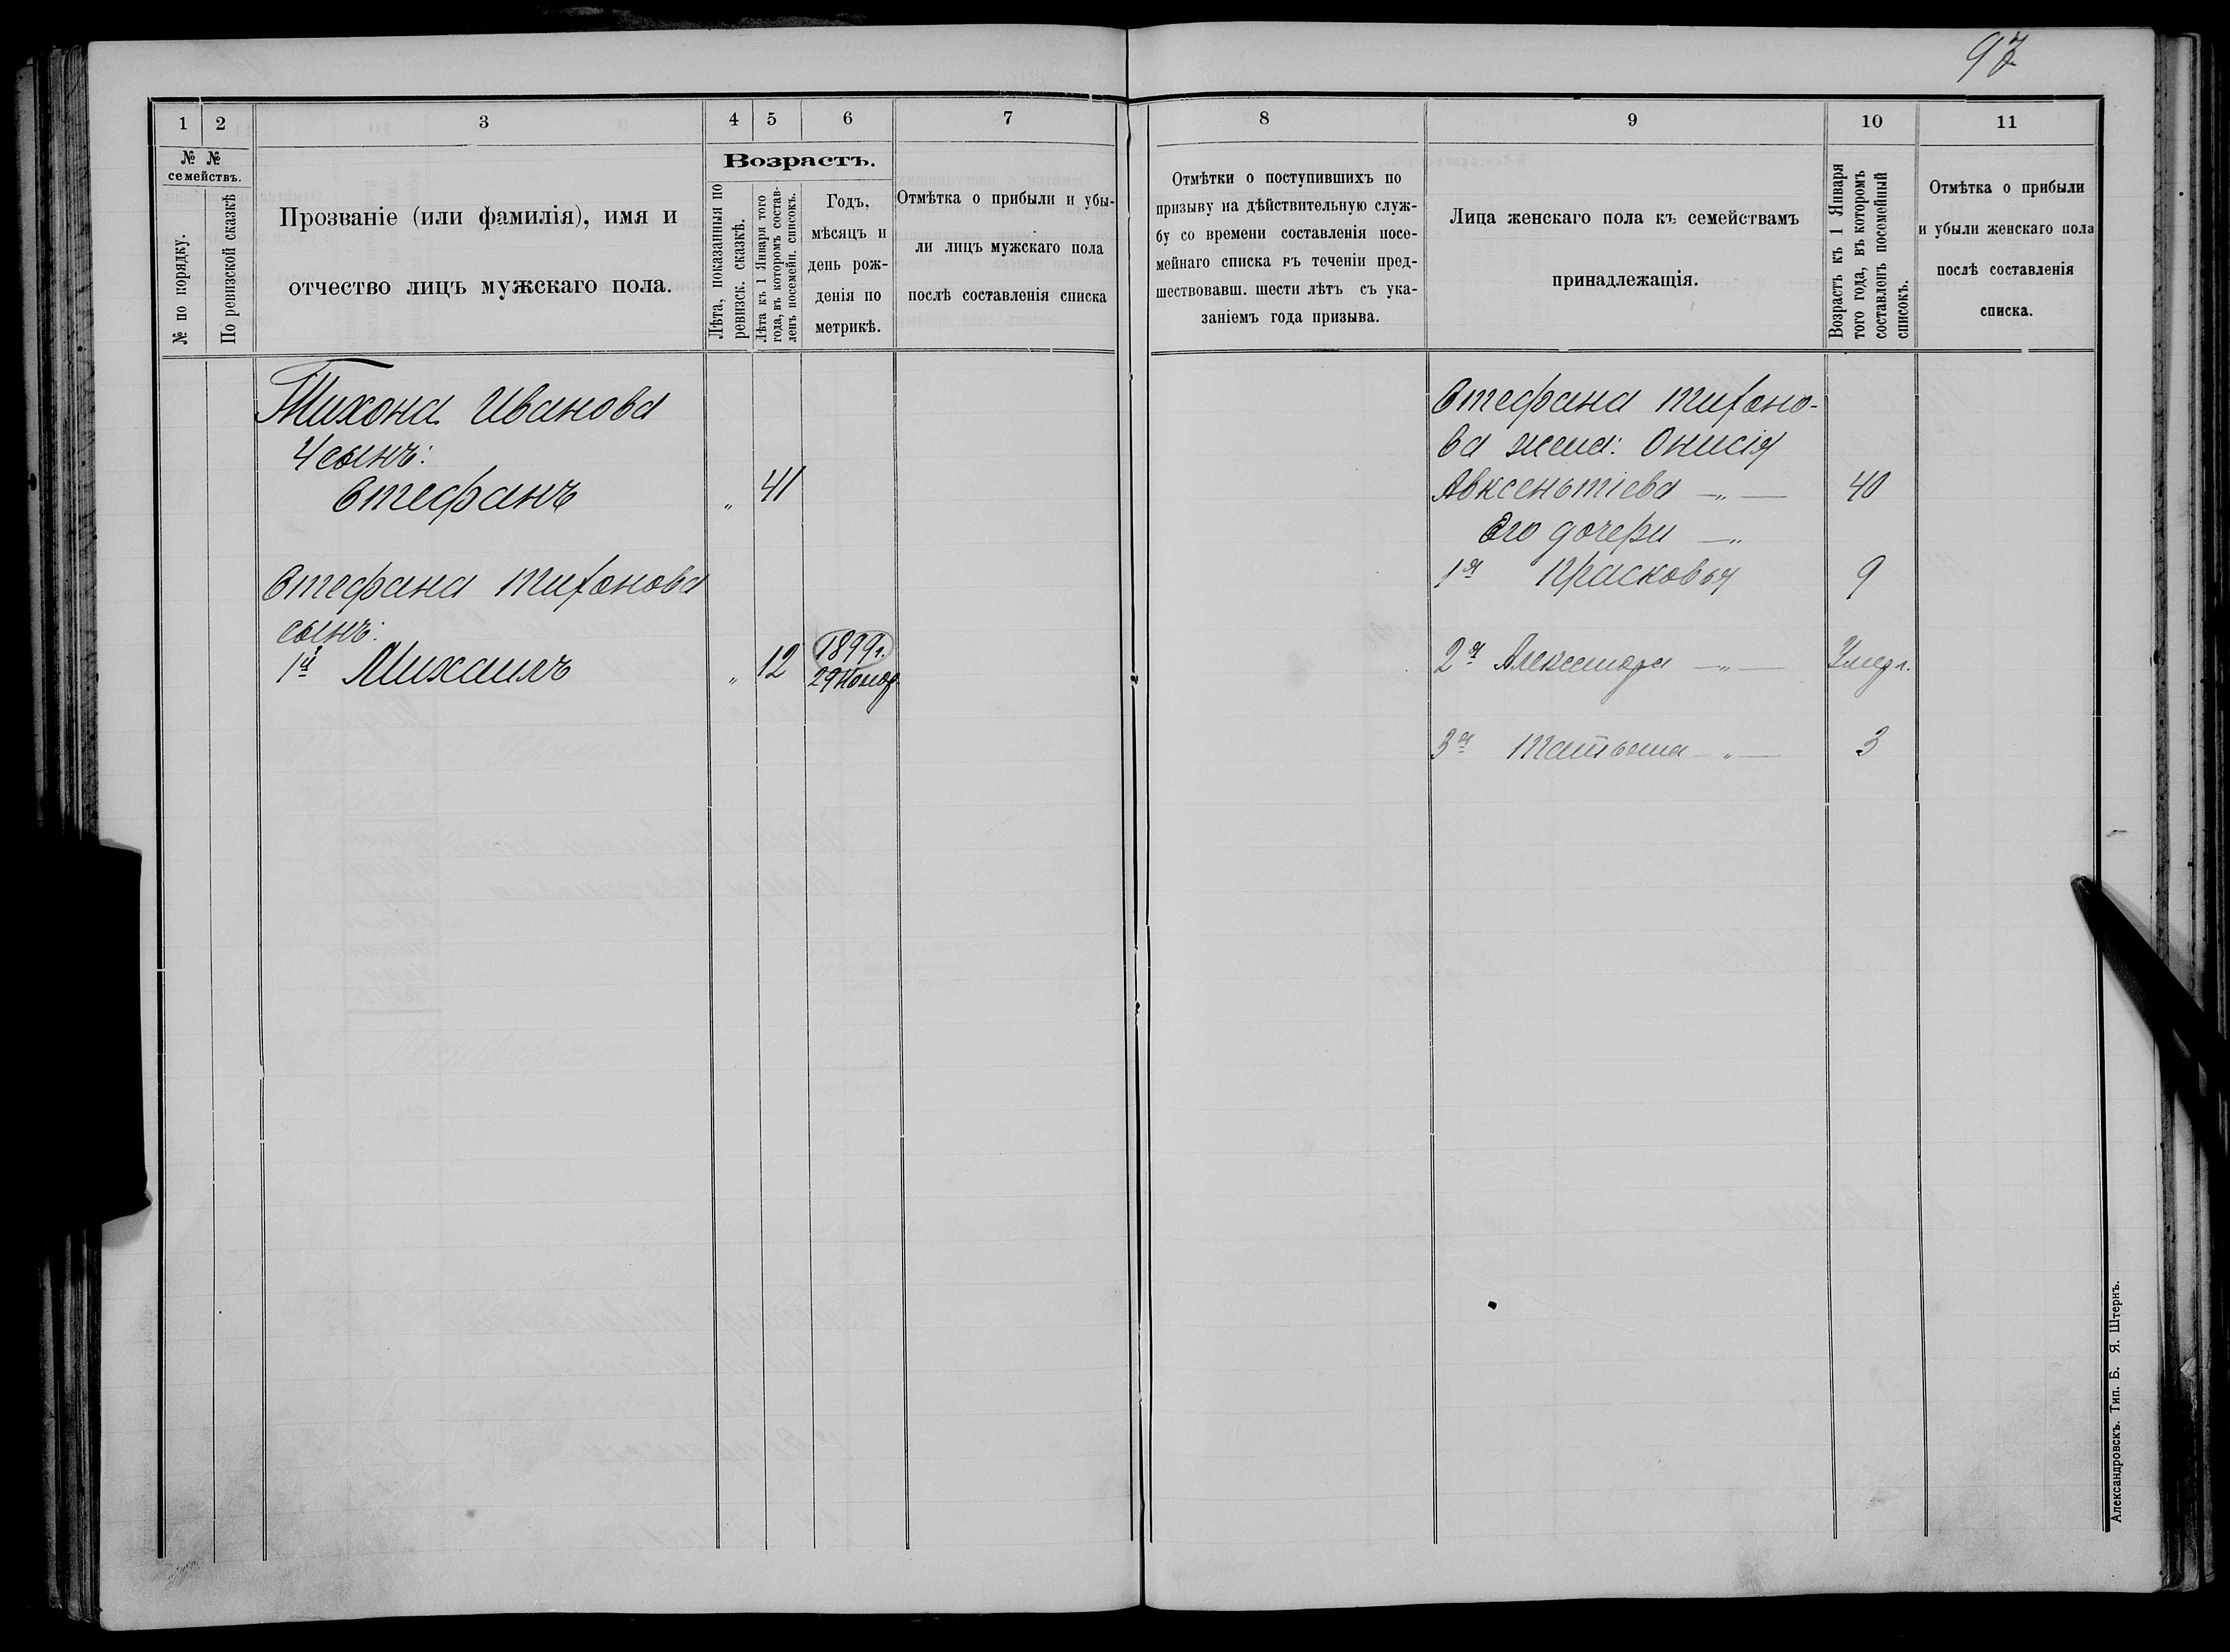 97
1 2 3 4 5 6 7
№ № семействъ.
№ по порядку.
По ревизской сказкѣ
Прозваніе (или фамилія), имя и
отчество лицъ мужскаго пола.
Возрастъ.
Лѣта, показанныя по
ревизск. сказкѣ.
Лѣта къ 1 Января того
года, въ которомъ состав-
ленъ посемейн. списокъ.
Годъ,
мѣсяцъ и
день рож-
денія по
метрикѣ.
Отмѣтка о прибыли и убы-
ли лицъ мужскаго пола
послѣ составленія списка
Тихона Иванова
4 сынъ:
Стефанъ „ 41
Стефана Тихонова
сынъ:
1й Михаилъ „ 12 1899г.
29 Нояб
8 9 10 11
Отмѣтки о поступившихъ по
призыву на дѣйствительную служ-
бу со времени составленія посе-
мейнаго списка въ теченіи пред-
шествовавш. шести лѣтъ съ ука-
заніемъ года призыва.
Лица женскаго пола къ семействамъ
принадлежащія.
Возрастъ къ 1 Января
того года, въ которомъ
составленъ посемейный
списокъ.
Отмѣтка о прибыли
и убыли женскаго пола
послѣ составленія
списка.
Стефана Тихоно-
ва жена: Онисія
Авксеньтіева —„— 40
Его дочери —„
1я Прасковья 9
2я Александра —„—
3я Татьяна —„— 3
Александровскъ. Тип. Б. Я. Штернъ.